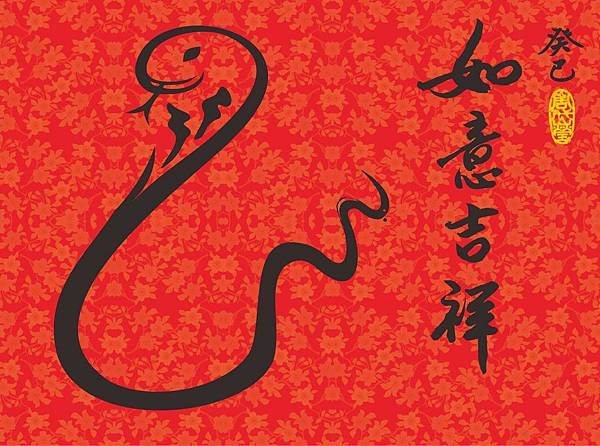 癸巳
如意吉祥